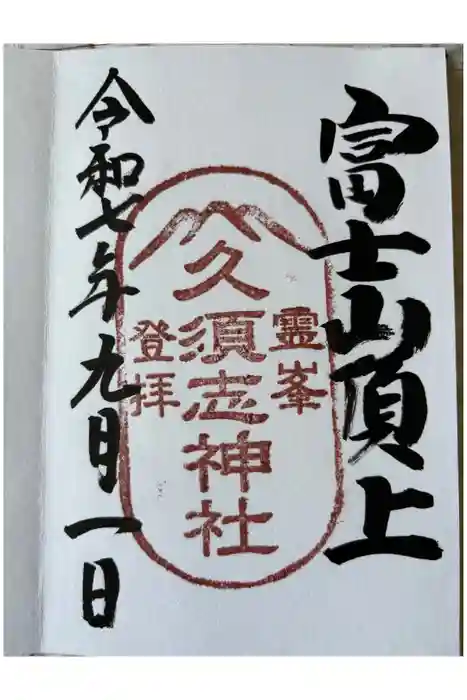 富士山頂上
霊峯
久須志神社
登拝
令和七年九月一日